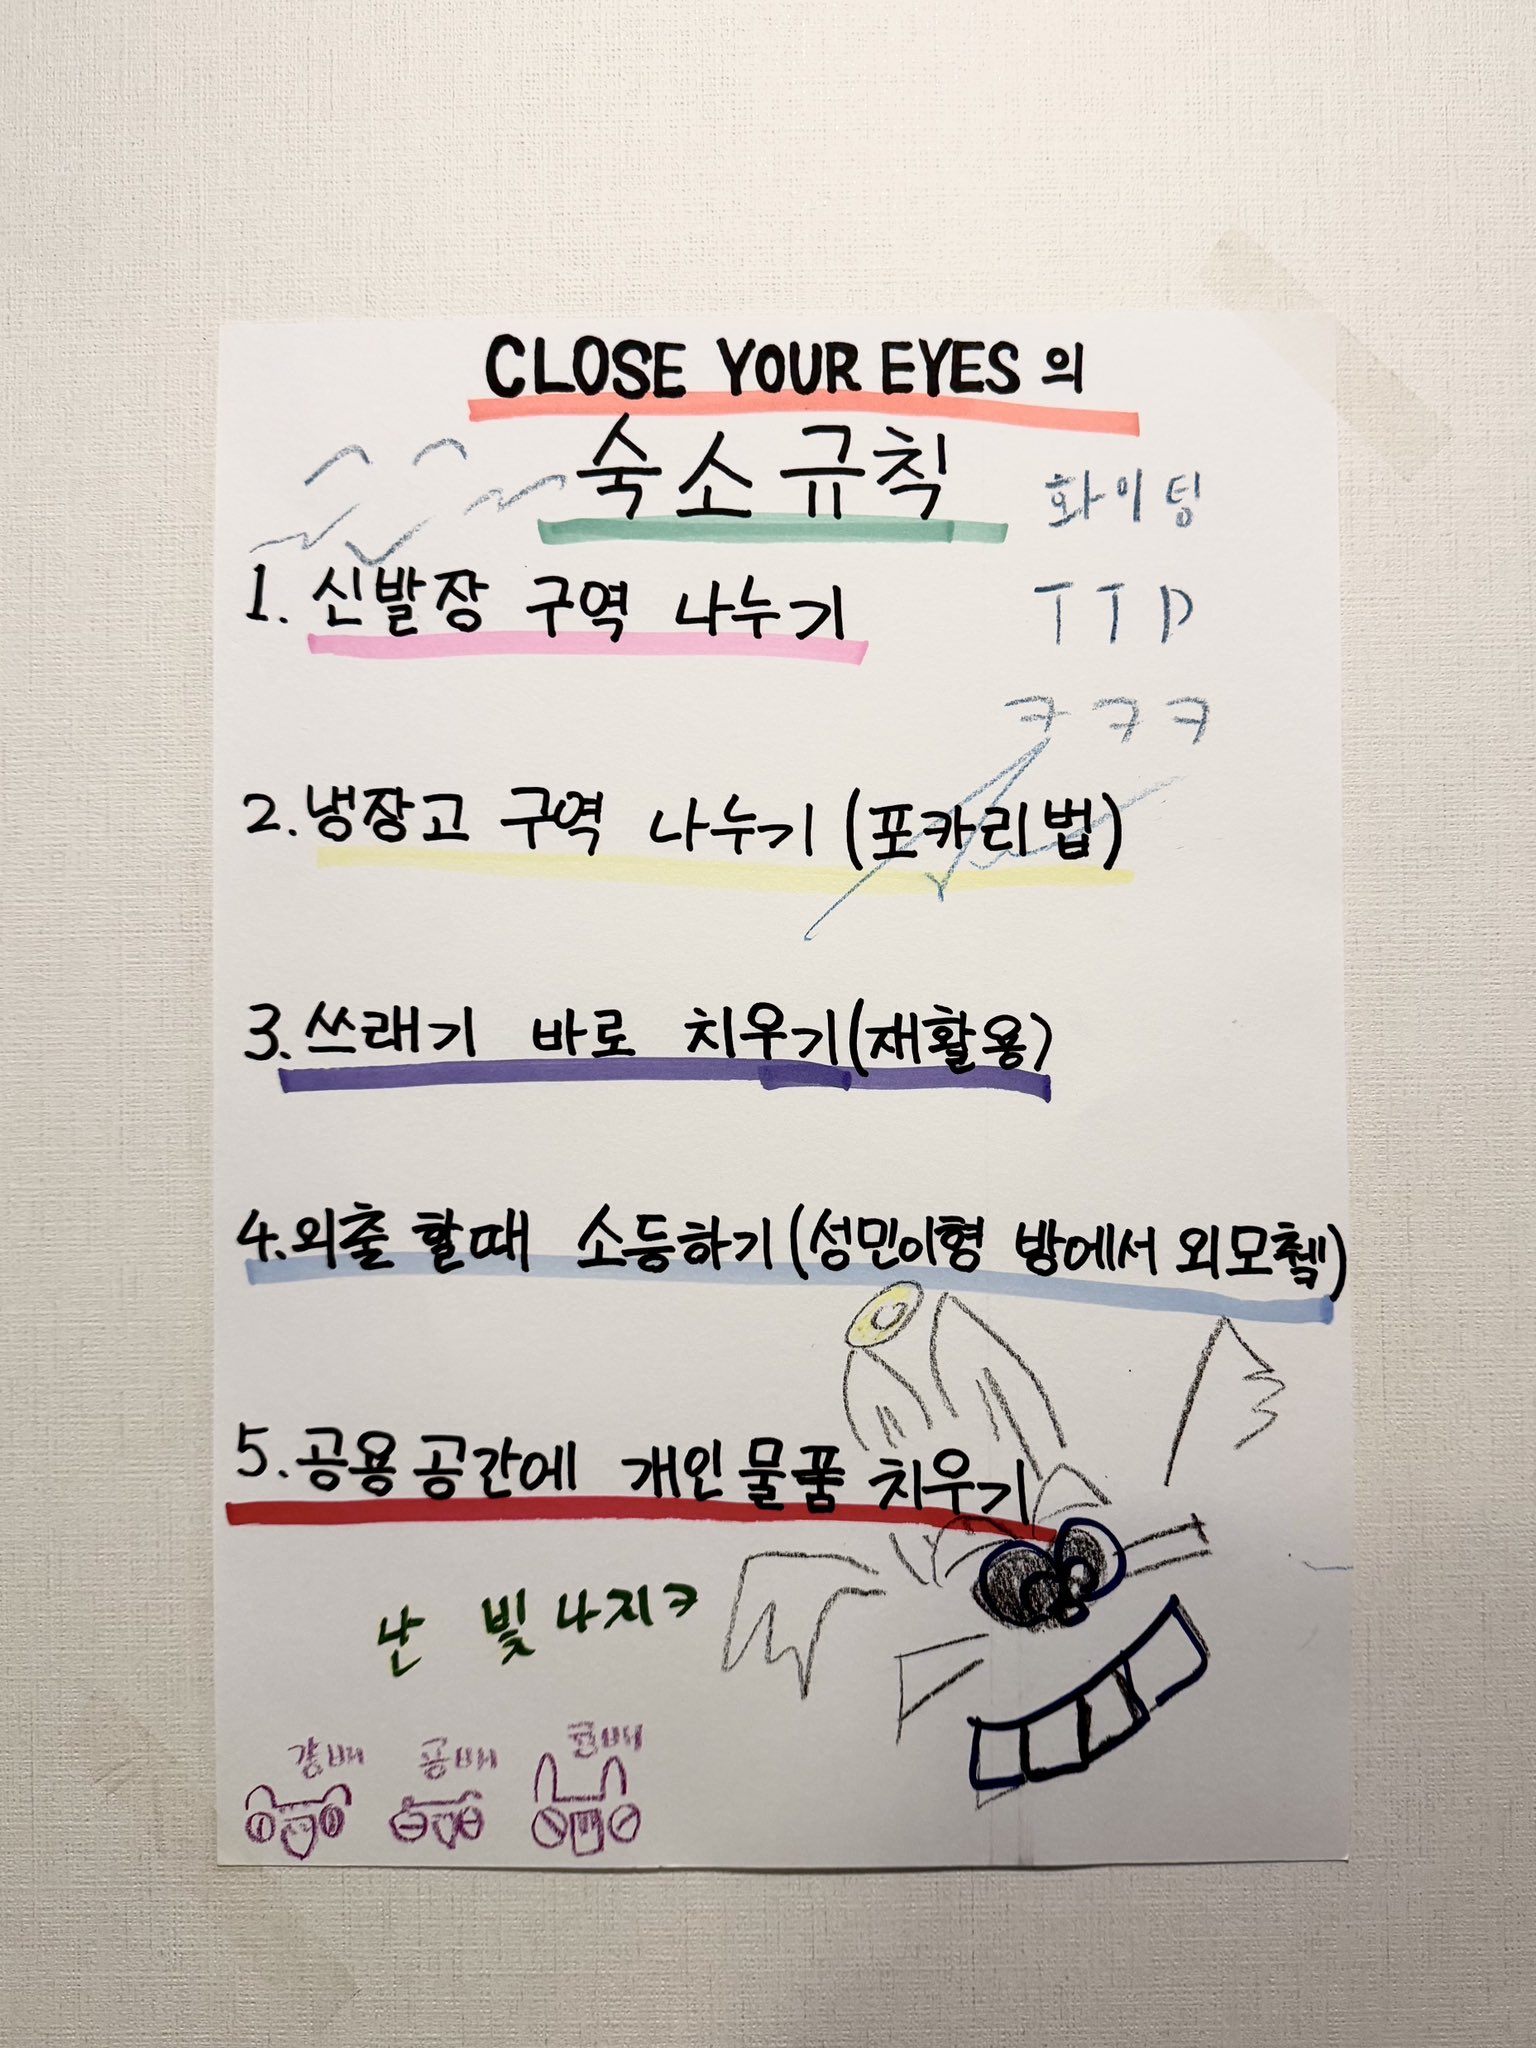 CLOSE YOUR EYES의
숙소규칙
화이팅
1. 신발장 구역 나누기
TTP
ㅋㅋㅋ
2. 냉장고 구역 나누기 (포카리법)
3. 쓰래기 바로 치우기(재활용)
4. 외출 할때 소등하기 (성민이형 방에서 외모첵)
5. 공용 공간에 개인 물품 치우기
난 빛나지ㅋ
걍배 공배